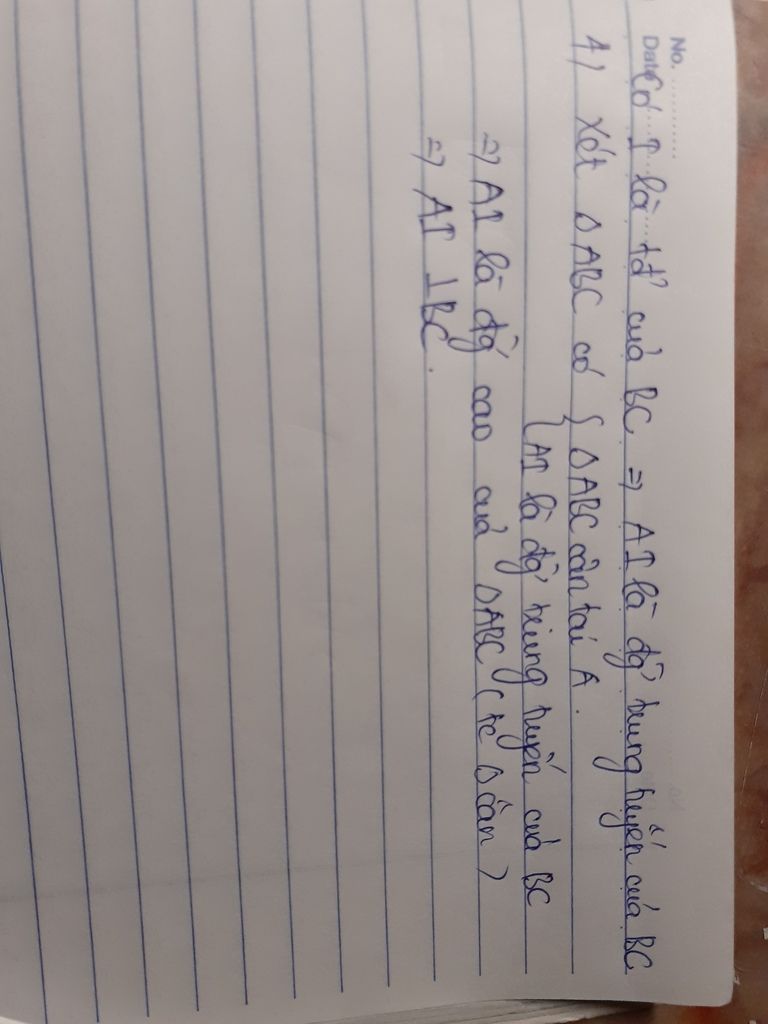 No. ............
Date ............
Có I là tđ' của BC => AI là đg' trung tuyến của BC
1) Xét Δ ABC có { Δ ABC cân tại A.
{ AI là đg' trung tuyến của BC
=> AI là đg' cao của Δ ABC ( tc Δ cân )
=> AI ⊥ BC.